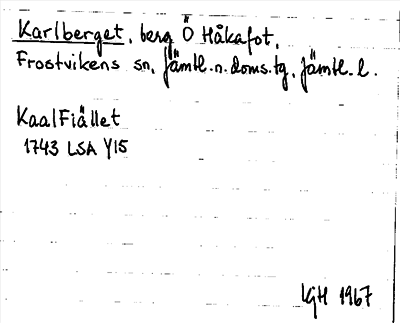 Karlberget, berg Ö Håkafot,
Frostvikens sn, Jämtl.n.doms.tg, Jämtl. l.
KaalFiället
1743 LSA Y15
LGH 1967